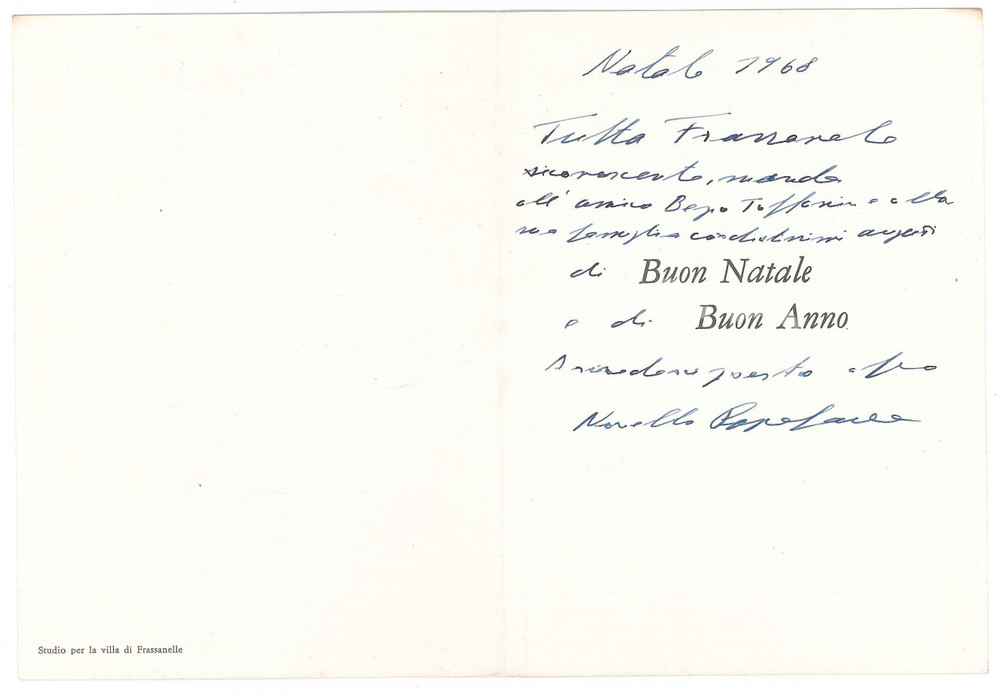 Natale 1968
Tutta Frassanelle
riconoscente, manda
all'amico Bepo Toffanin e alla
sua famiglia cordialissimi auguri
di Buon Natale
e di Buon Anno
Arrivederci presto aff.mo
Novello Papafava
Studio per la villa di Frassanelle